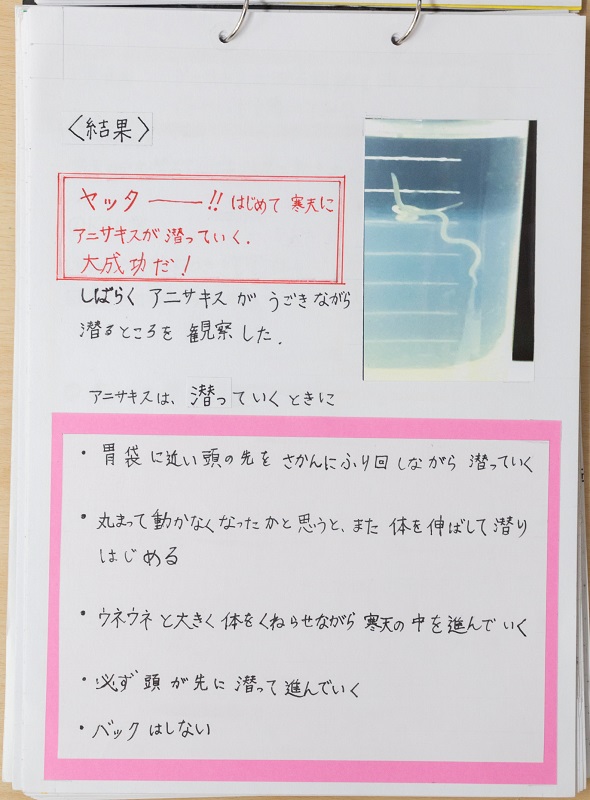 〈結果〉
ヤッター――!! はじめて 寒天に
アニサキスが 潜っていく.
大成功だ!
しばらく アニサキス が うごきながら
潜るところを 観察した.
アニサキスは、潜っていくときに
・胃袋に近い頭の先を さかんにふり回しながら 潜っていく
・丸まって動かなくなったかと思うと、また 体を伸ばして潜り
はじめる
・ウネウネと大きく体をくねらせながら 寒天の中を進んでいく
・必ず頭が先に潜って進んでいく
・バックはしない